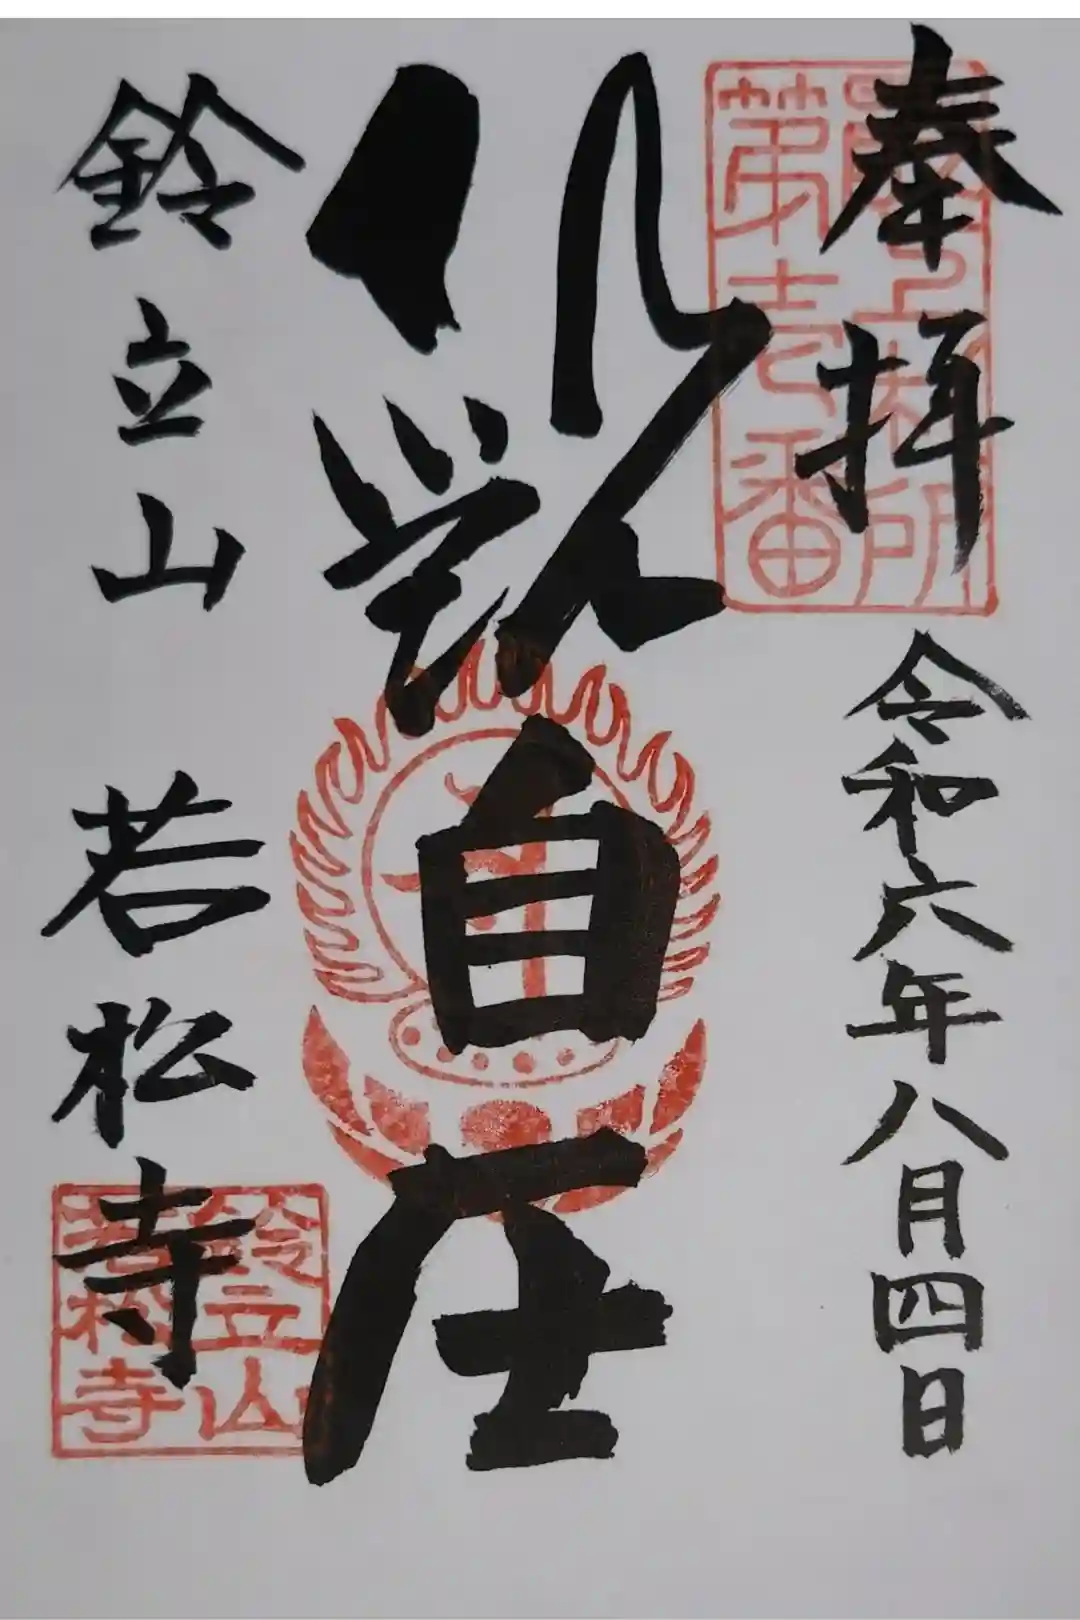 奉拝
令和六年八月四日
第壱番
観自在
鈴立山 若松寺
鈴立山
若松寺